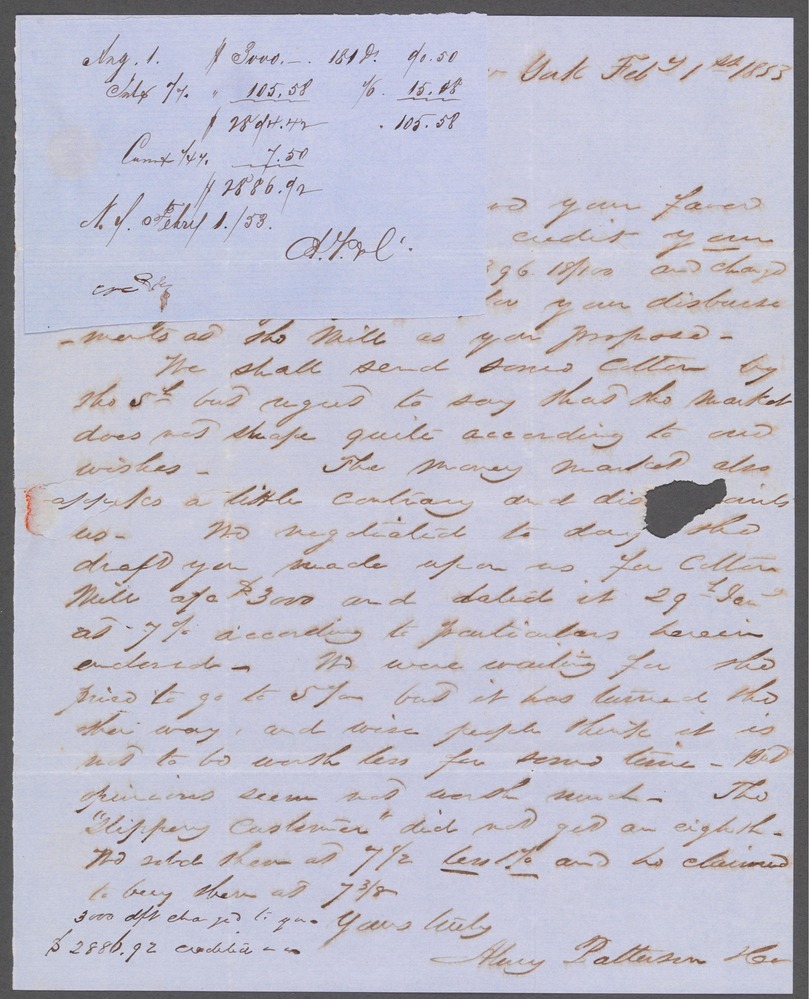 Aug. 1. $ 3000.— 181 Ds. 90.50
Intst 7%. " 105.58 1/6. 15.08
$ 2894.42 . 105.58
Comn 1/4%. 7.50
$ 2886.92
N.Y. Feby 1./53.
York Feby 1st 1853
your favor
credit your
96 18/100 and charge
your disburse
-ments at the Mill as you propose -
We shall send some Cotton by
the 5th but regret to say that the market
does not shape quite according to our
wishes - The money market also
appears a little contrary and dis
us - We negotiated to day the
draft you made upon us for Cotton
Mill a/c $3000 and dated it 29th Jany
at - 7% according to particulars herein
enclosed - We were waiting for the
price to go to 5% but it has turned the
other way, and wise people think it is
not to be worth less for some time - But
opinions seem not worth much - The
"Slippery Customer" did not get an eighth -
We sold them at 7 1/2 less 1% and he claimed
to buy them at 7 3/8
3000 dft charged to you Yours truly
$ 2886.92 credited
Patterson & Co